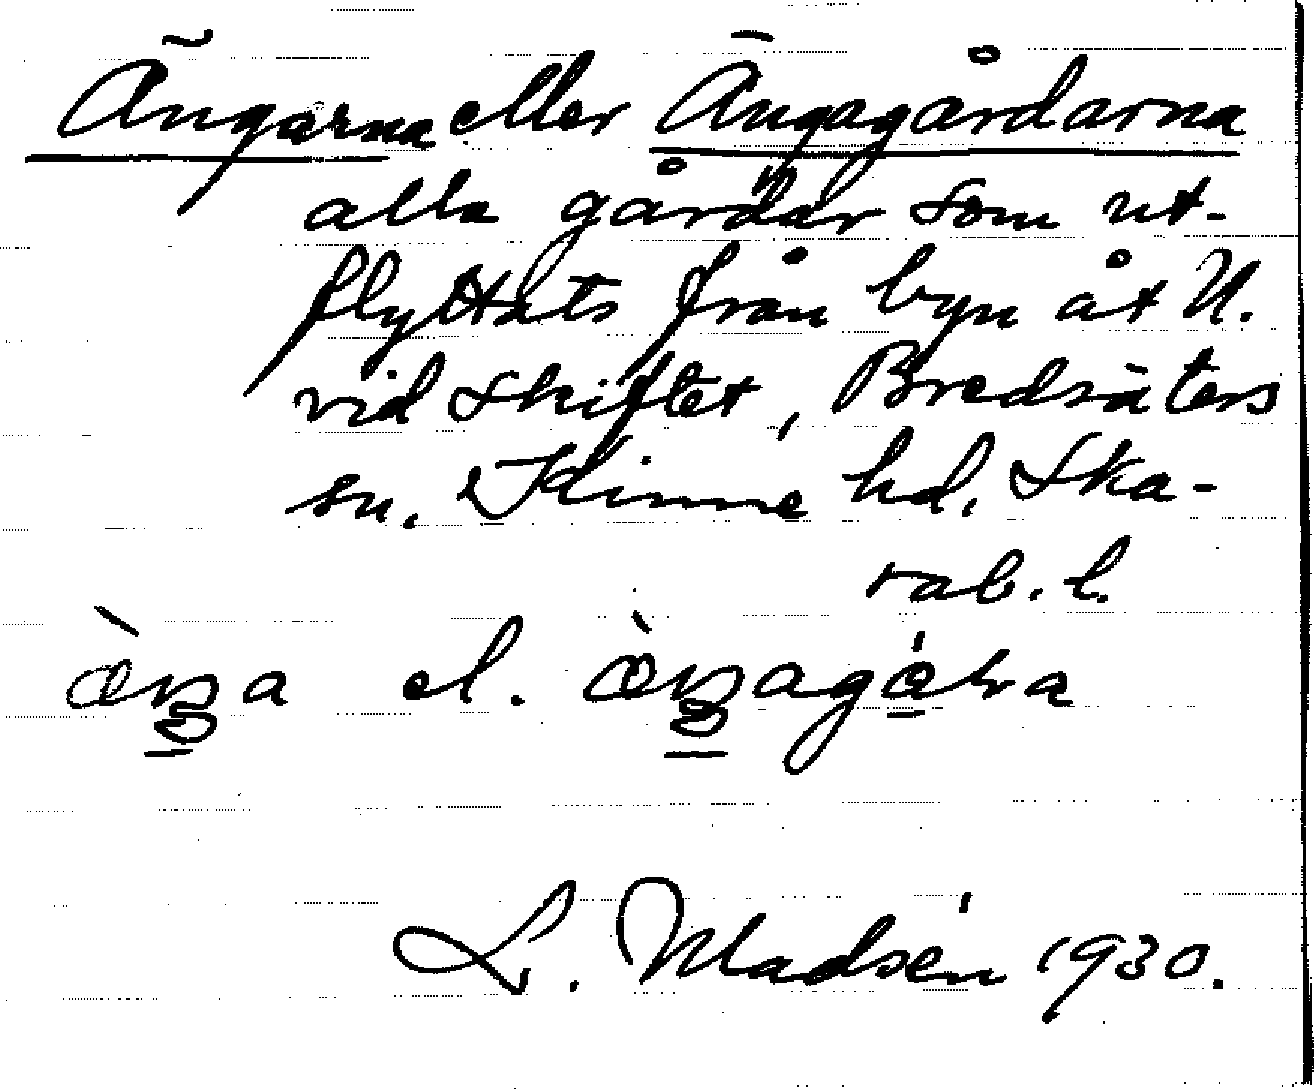 Ängarna eller Ängagårdarna
alla gårdar som ut-
flyttats från byn åt N.
vid skiftet, Bredsäters
sn. Kinne hd. Ska-
rab. l.
el.
L. Madsén 1930.